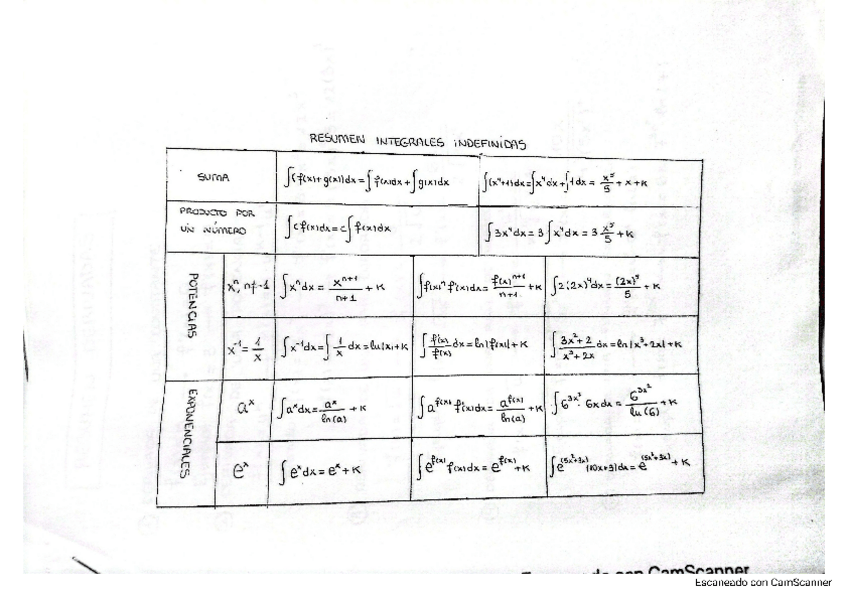 RESUMEN INTEGRALES INDEFINIDAS
SUMA
∫(f(x)+g(x))dx=∫f(x)dx+∫g(x)dx
∫(x⁴+1)dx=∫x⁴dx+∫1dx= x⁵/5 +x+K
PRODUCTO POR
UN NÚMERO
∫cf(x)dx=c∫f(x)dx
∫3x⁴dx=3∫x⁴dx=3 x⁵/5 +K
POTENCIAS
xⁿ, n≠-1
∫xⁿdx= xⁿ⁺¹/n+1 +K
∫f(x)ⁿf'(x)dx= f(x)ⁿ⁺¹/n+1 +K
∫2(2x)⁴dx= (2x)⁵/5 +K
x⁻¹= 1/x
∫x⁻¹dx=∫ 1/x dx=ln|x|+K
∫ f'(x)/f(x) dx=ln|f(x)|+K
∫ 3x²+2/x³+2x dx=ln|x³+2x|+K
EXPONENCIALES
aˣ
∫aˣdx= aˣ/ln(a) +K
∫a^f(x) f'(x)dx= a^f(x)/ln(a) +K
∫6^3x² · 6xdx= 6^3x²/ln(6) +K
eˣ
∫eˣdx=eˣ+K
∫e^f(x) f'(x)dx=e^f(x)+K
∫e^(5x²+3x) (10x+3)dx=e^(5x²+3x)+K
Escaneado con CamScanner